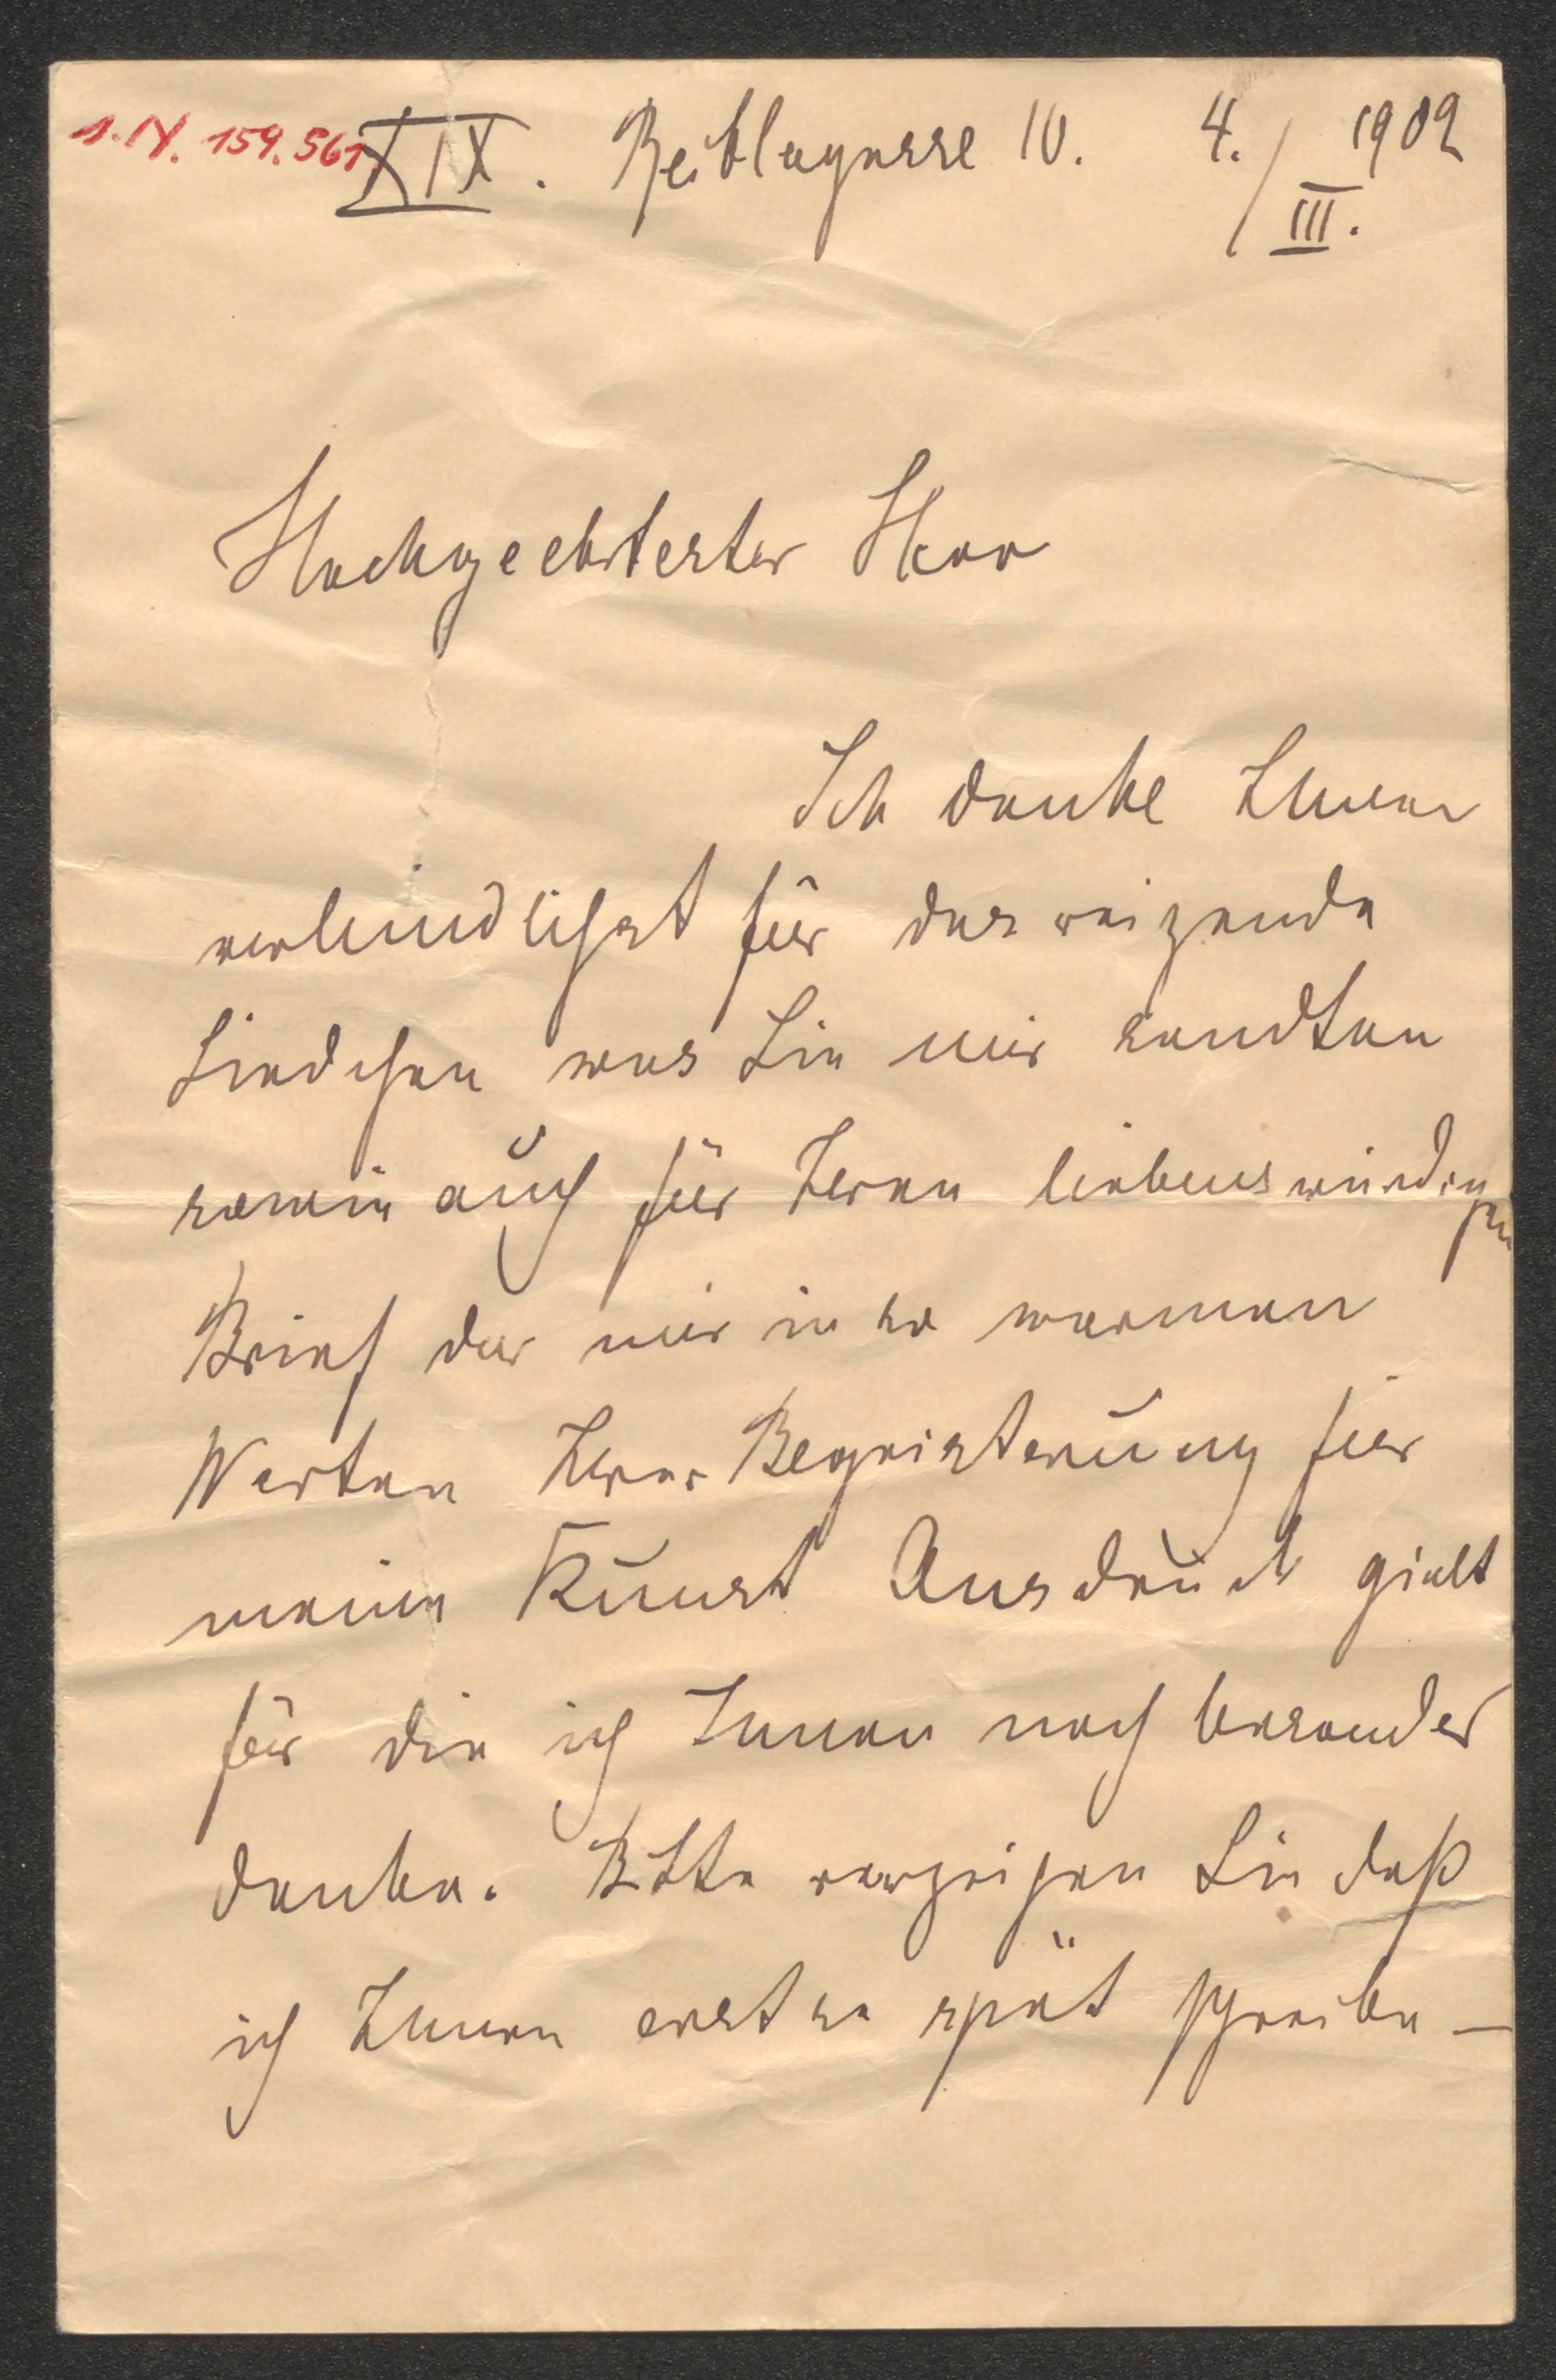 I.N. 159.561
XIX. Reithlegasse 10. 4./III. 1902
Hochgeehrtester Herr
Ich danke Ihnen
verbindlichst für das reizende
Liedchen was Sie mir sandten
sowie auch für Ihren liebenswürdigen
Brief der mir in so warmen
Worten Ihrer Begeisterung für
meine Kunst Ausdruck giebt
für die ich Ihnen noch besonder
danke. Bitte verzeihen Sie daß
ich Ihnen erst so spät schreibe –